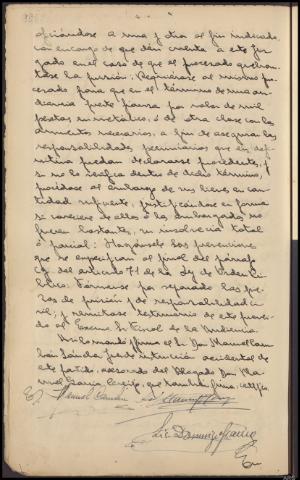 oficiándose a una y otra al fin indicado
con encargo de que den cuenta a este Juz
gado en el caso de que el procesado quebran
tase la prisión: Requiérase al mismo pro
cesado para que en el término de una au
diencia preste fianza por valor de mil
pesetas en metálico, o de otra clase con los
aumentos necesarios, a fin de asegurar las
responsabilidades pecuniarias que en defi
nitiva puedan declararse procedentes, y
si no lo verifica dentro de dicho término,
procédase al embargo de sus bienes en can
tidad suficiente, justificándose en forma
se careciere de ellos o los embargados no
fueren bastantes, su insolvencia total
o parcial: Hágansele las prevenciones
que se especifican al final del párrafo
del artículo 71 de la Ley de Orden Pú
blico: Fórmense por separado las pie
zas de prisión y de responsabilidad ci
vil; y remítase testimonio de este proveí
do al Excmo. Sr. Fiscal de la Audiencia.
Así lo mandó y firma el Sr. Don Manuel
Juez de instrucción accidental de
este partido, asesorado del Abogado Don Ma
nuel García que también firma, certifico.